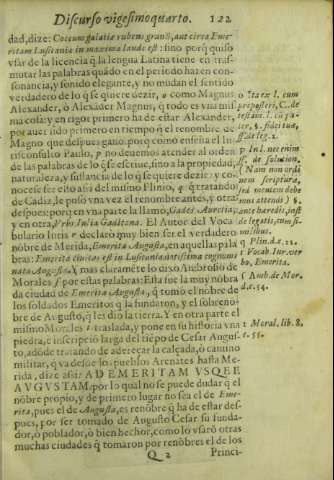 Discurso vigesimoquarto. 122
dad, dize: Coccum galatiæ rubens granũ, aut circa Eme-
ritam Lusitaniæ in maxima laude est: sino porq̃ quiso
vsar de la licencia q̃ la lengua Latina tiene en tras-
mutar las palabras quãdo en el periodo hazen con-
sonancia, y sonido elegante, y no mudan el sentido
verdadero de lo q̃ se quiere dezir, o como Magnus
Alexander, ò Alexãder Magnus, q̃ todo es vna mis
ma cosa: y en rigor primero ha de estar Alexander,
por auer sido primero en tiempo q̃ el renombre de
Magno que despues gano. porq̃ como enseña el Iu-
risconsulto Paulo, p no deuemos atender al orden
de las palabras de lo q̃ se escriue, sino a la propiedad,
naturaleza, y sustancia de lo q̃ se quiere dezir: y co-
nocese ser esto assi del mismo Plinio, q q̃ tratando
de Cadiz, le puso vna vez el renombre antes, y otra
despues: porq̃ en vna parte la llamo, Gades Augusta,
y en otra, Vrbs Iulia Gaditana. El Autor del Voca
bulario letra r declarò muy bien ser el verdadero
nõbre de Merida, Emerita Augusta, en aquellas pala
bras: Emerita ciuitas est in Lusitania antissima cognomi
nata Augusta. Y mas claramẽte lo dixo Ambrosio de
Morales s por estas palabras: Esta fue la muy nõbra
da ciudad de Emerita Augusta, q̃ tomo el nõbre de
los soldados Emeritos q̃ la fundaron, y el sobrenõ-
bre de Augusto, q̃ les dio la tierra. Y en otra parte el
mismo Morales t traslada, y pone en su historia vna
piedra, e inscripciõ larga del tiẽpo de Cesar Augus-
to, adõde tratando de adereçar la calçada, ò camino
militar, q̃ va desde los pueblos Arenates hasta Me-
rida, dize assi: AD EMERITAM VSQVE
AVGVSTAM, por lo qual no se puede dudar q̃ el
nõbre propio, y de primero lugar no sea el de Eme-
rita, pues el de Augusta, es renõbre q̃ ha de estar des-
pues, por ser tomado de Augusto Cesar su funda-
dor, ò poblador, ò bien hechor, como lo vsarõ otras
muchas ciudades q̃ tomaron por renõbres el de los
Q 2 Princi-
o Text. in l. cum
præposteri, C. de
testam.
ff. de leg. 2.
p In l. nec enim
ff. de solution.
(Nam non ordi
nem scripturæ,
sed mentem debe
mus attendi)
de legatis,
similibus.
q Plin. d. c. 22.
r Vocab. iur. ver
bo, Emerita.
s Amb. de Mor.
d. c. 54.
t Moral. lib. 8.
c. 55.